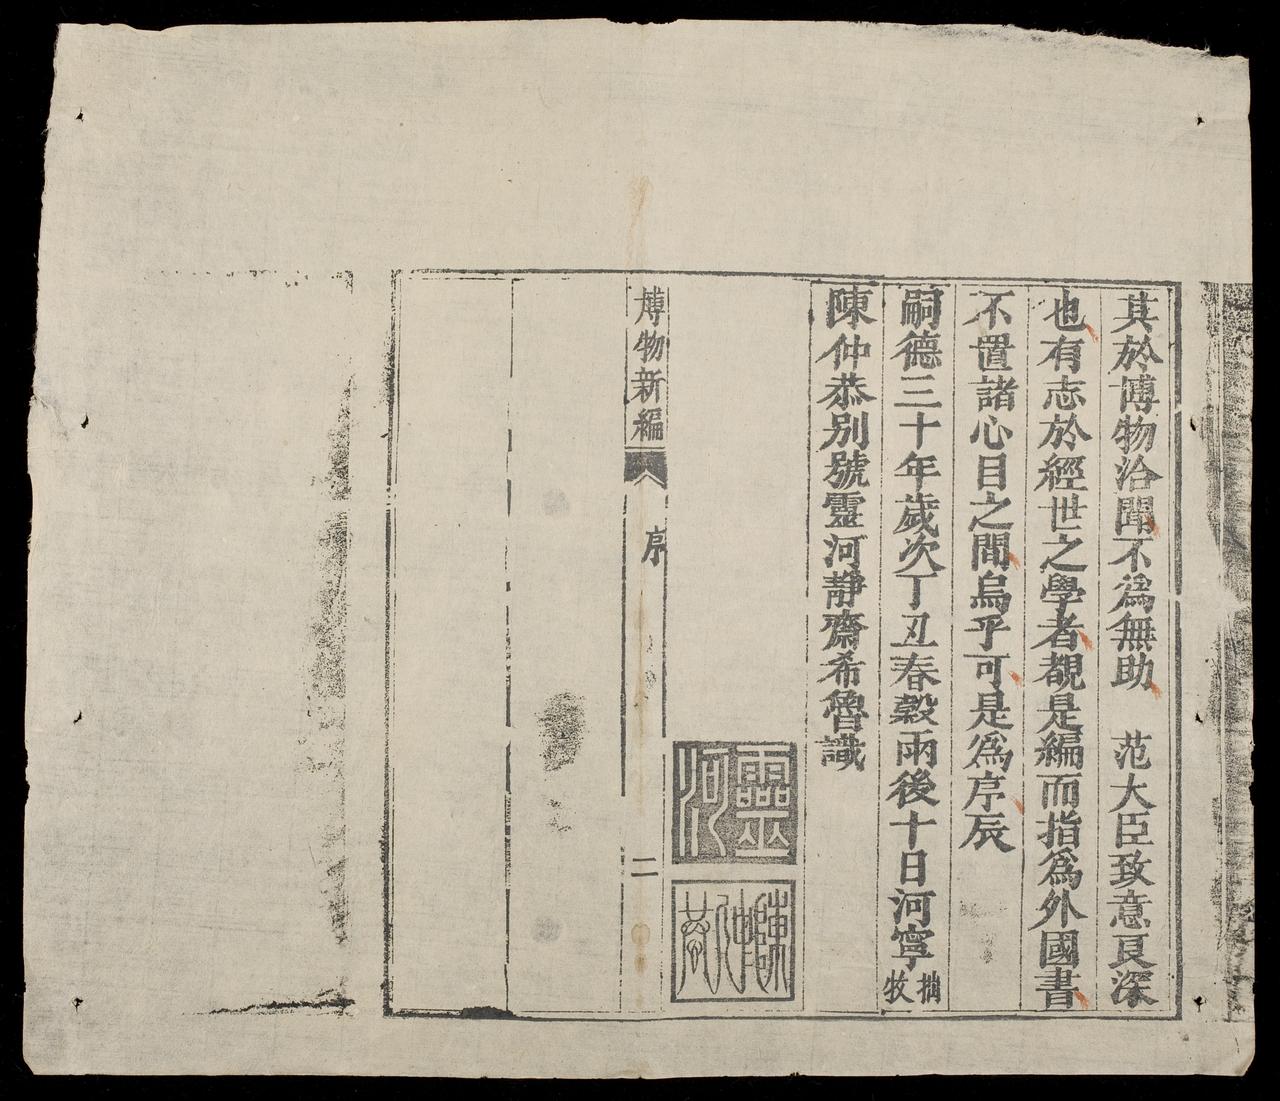 其於博物洽聞不爲無助　范大臣致意良深
也有志於經世之學者覩是編而指爲外國書
不置諸心目之間烏乎可是爲序辰
嗣德三十年歲次丁丑春穀雨後十日河寧
拙牧
陳仲恭別號靈河靜齋希魯識
靈河
陳仲恭
博物新編
序
二